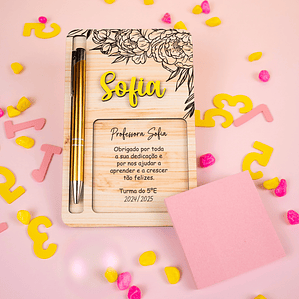 Sofia
Professora Sofia
Obrigado por toda
a sua dedicação e
por nos ajudar a
aprender e a crescer
tão felizes.
Turma do 5ºE
2024/2025